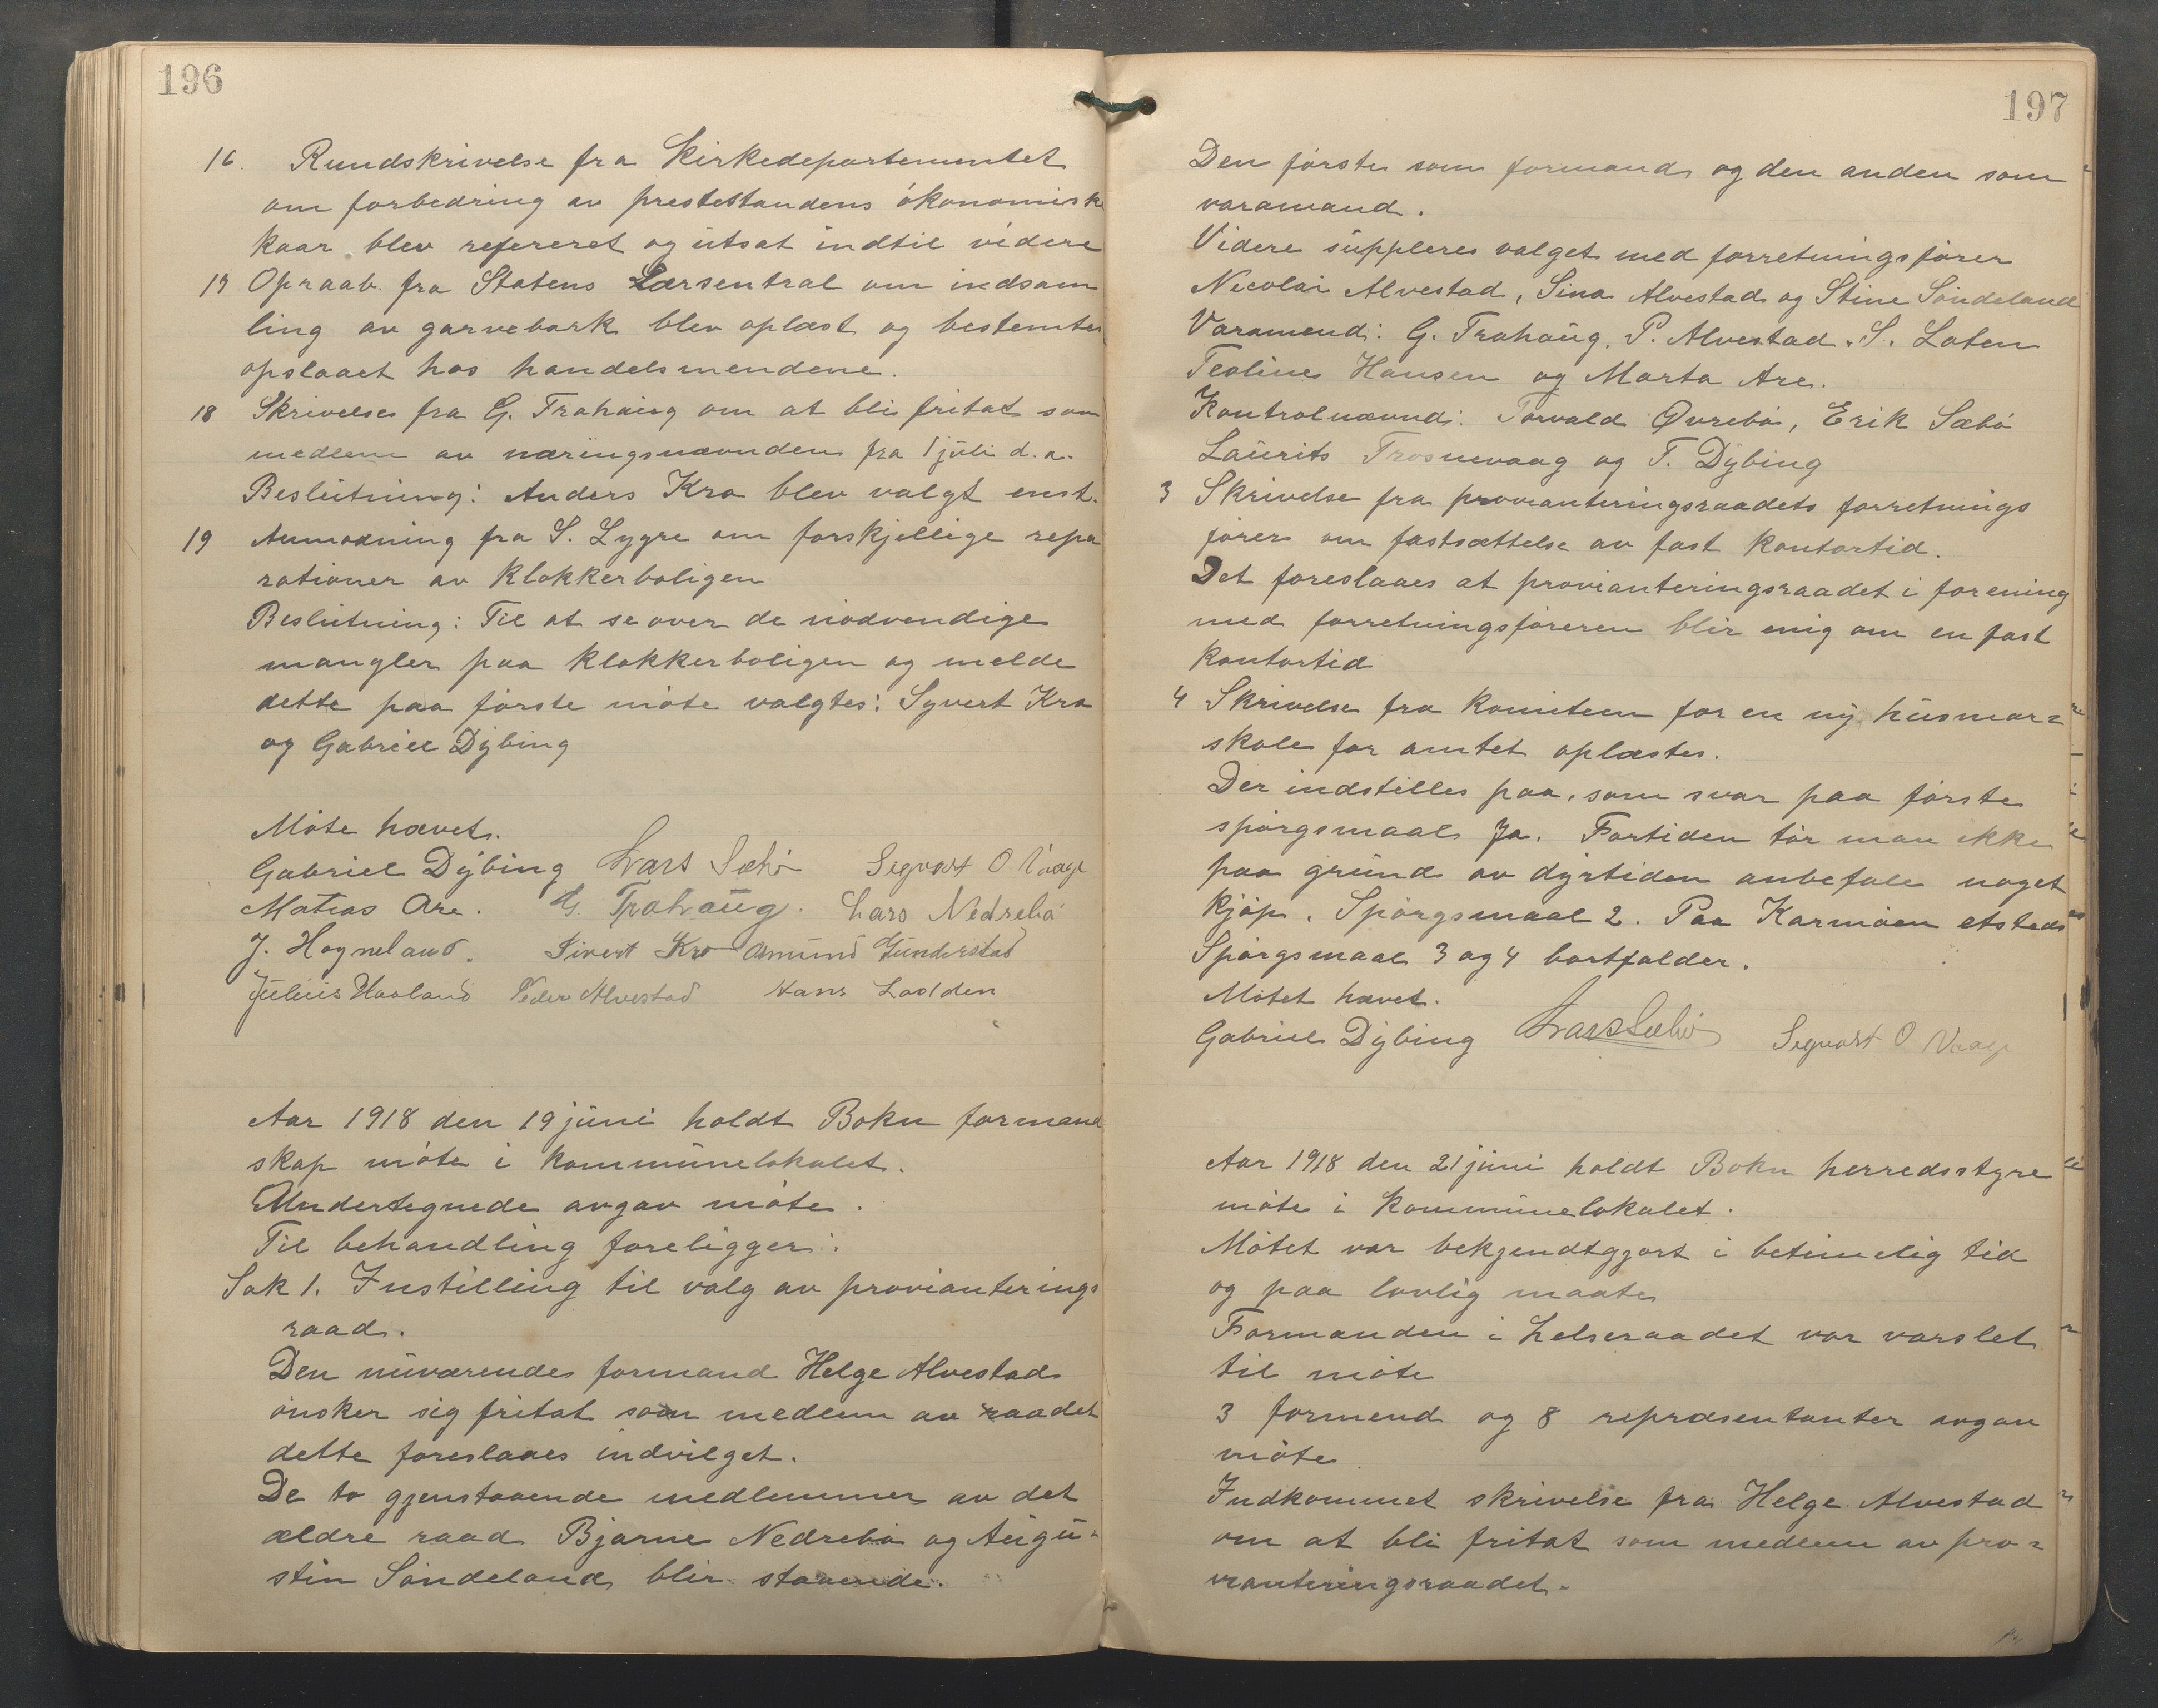 196
16. Rundskrivelse fra Kirkedepartementet
om forbedring av prestestandens ökonomiske
kaar blev refereret og utsat indtil videre
17 Opraab fra Statens Lærsentral om indsam
ling av garvebark blev oplæst og bestemtes
opslaaet hos handelsmendene.
18 Skrivelse fra G. Trohaug om at bli fritat som
medlem av næringsnævnden fra 1 juli d.a.
Beslutning: Anders Kro blev valgt enst.
19 Anmodning fra S. Lygre om forskjellige repa
rationer av klokkerboligen
Beslutning: Til at se over de nödvendige
mangler paa klokkerboligen og melde
dette paa förste möte valgtes: Syvert Kro
og Gabriel Dybing
Möte hævet.
Gabriel Dybing Lars Sæbö Segvart O Vaage
Matias Are. G. Trohaug. Lars Nedrebö
J. Hogneland. Sivert Kro Amund Gunderstad
Julius Haaland Peder Alvestad Hans Lodden
Aar 1918 den 19 juni holdt Bokn formand
skap möte i kommunelokalet.
Undertegnede avgav möte.
Til behandling foreligger:
Sak 1. Instilling til valg av provianterings
raad.
Den nuværende formand Helge Alvestad
önsker sig fritat som medlem av raadet
dette foreslaaes indvilget.
De to gjenstaaende medlemmer av det
ældre raad Bjarne Nedrebö og Augu-
stin Söndeland blir staaende.
197
Den förste som formand og den anden som
varamand.
Videre suppleres valget med forretningsförer
Nicolai Alvestad, Sina Alvestad og Stine Söndeland
Varamend: G. Trohaug, P. Alvestad, S. Loten
Teoline Hansen og Marta Are.
Kontrolnævnd: Torvald Øvrebö, Erik Sæbö
Laurits Trosnevaag og T. Dybing
3 Skrivelse fra provianteringsraadets forretnings
förer om fastsættelse av fast kontortid.
Det foreslaaes at provianteringsraadet i forening
med forretningsföreren blir enig om en fast
kontortid
4 Skrivelse fra komiteen for en ny husmor=
skole for amtet oplæstes.
Der indstilles paa, som svar paa förste
spörgsmaal Ja. Fortiden tör man ikke
paa grund av dyrtiden anbefale noget
kjöp. Spörgsmaal 2. Paa Karmöen etsteds
Spörgsmaal 3 og 4 bortfalder.
Mötet hævet.
Gabriel Dybing Lars Sæbö Segvart O Vaage
Aar 1918 den 21 juni holdt Bokn herredsstyre
möte i kommunelokalet.
Mötet var bekjendtgjort i betimelig tid
og paa lovlig maate
Formanden i helseraadet var varslet
til möte
3 formend og 8 repræsentanter avgav
möte
Indkommet skrivelse fra Helge Alvestad
om at bli fritat som medlem av pro=
vianteringsraadet.